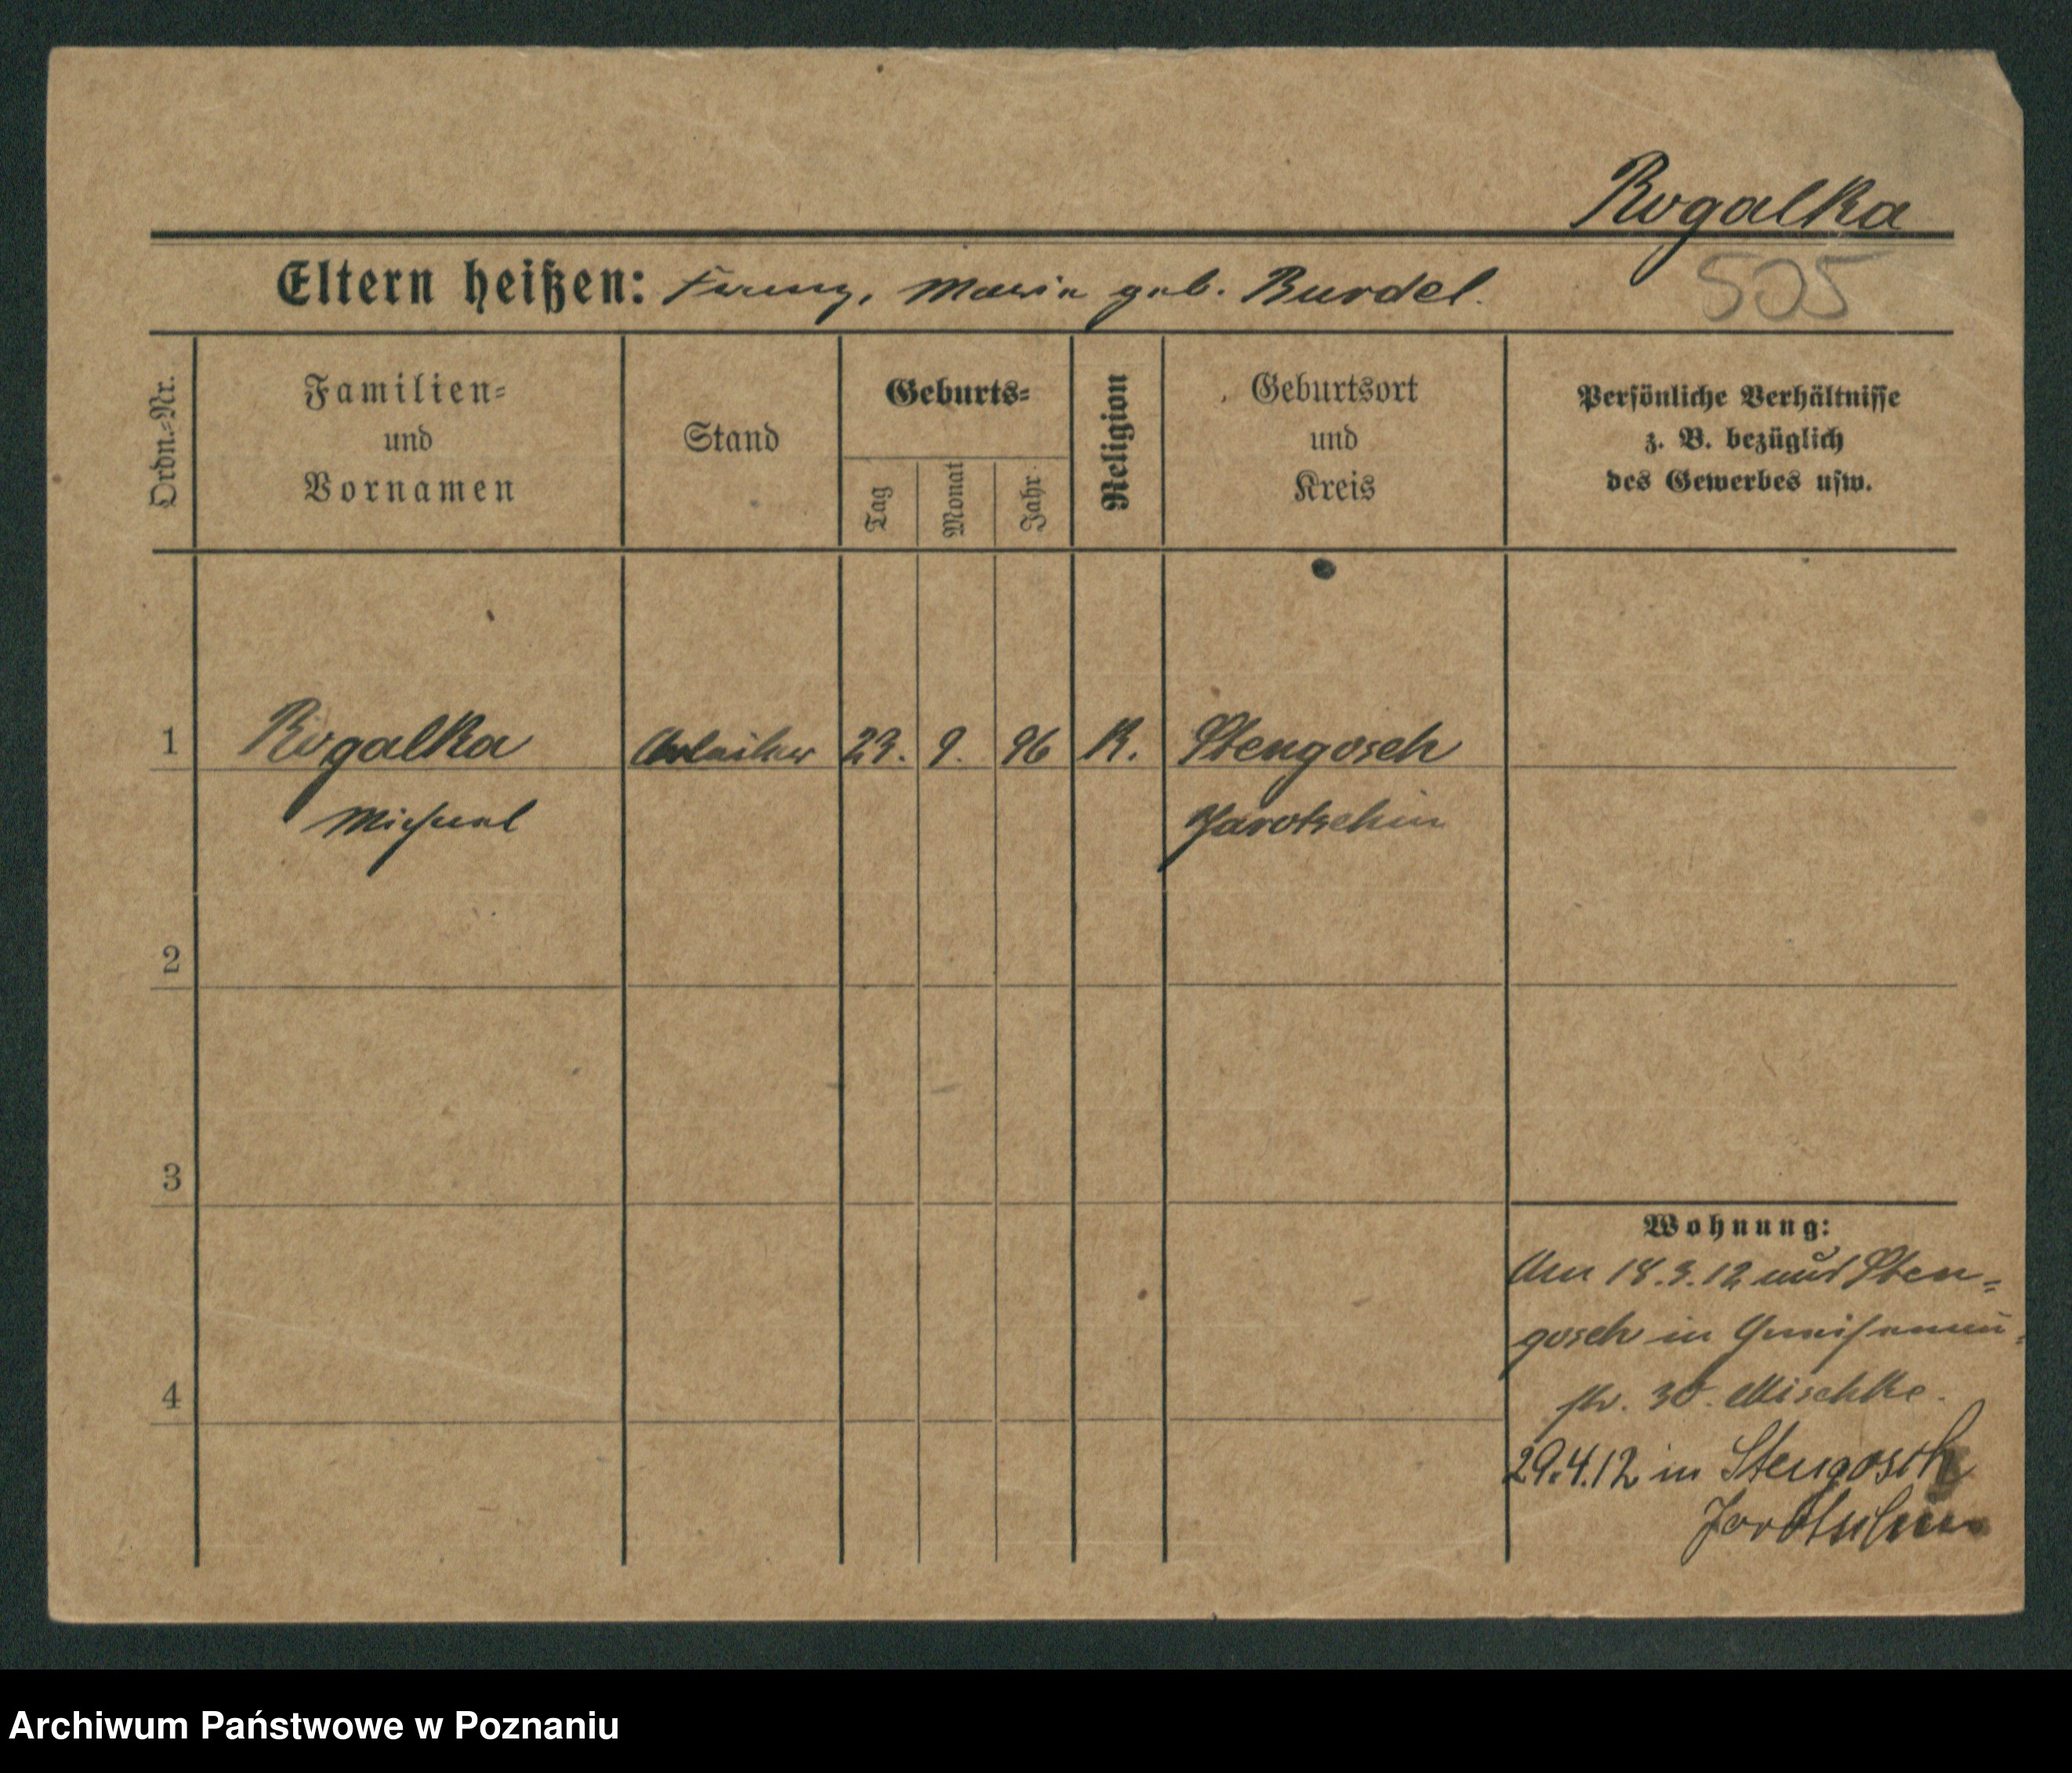 Rogalka
505
Eltern heißen: Franz, Maria geb. Burdel.
Ordn.-Nr.
Familien-
und
Vornamen
Stand
Geburts-
Tag
Monat
Jahr
Religion
Geburtsort
und
Kreis
Persönliche Verhältnisse
z. B. bezüglich
des Gewerbes usw.
1 Rogalka Arbeiter 23. 9. 96 K. Stengosch
Michael Jarotschin
2
3
4
Wohnung:
Am 18.3.12 aus Sten-
gosch in Gneisenau-
str. 30. Mischke.
29.4.12 in Stengosch
Jarotschin
Archiwum Państwowe w Poznaniu